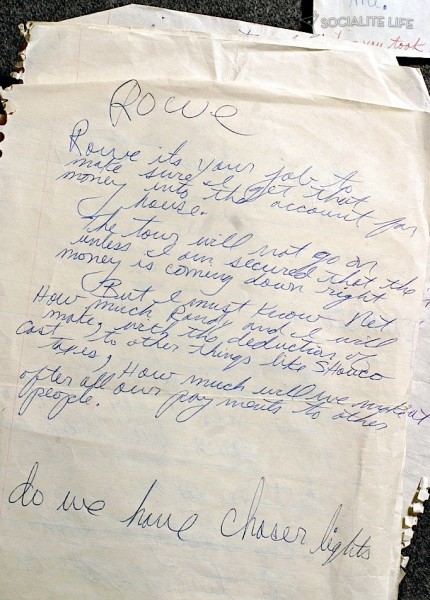 SOCIALITE LIFE
you took
Rowe
Rowe its your job to
make sure I get that
money into the account for
house.
The tour will not go on
unless I am secured that the
money is coming down right
But I must Know Net
How much Randy and I will
make, with the deduction of
cost to other things like SHowco
taxes, How much will we make
after all our payments to other
people.
do we have chaser lights